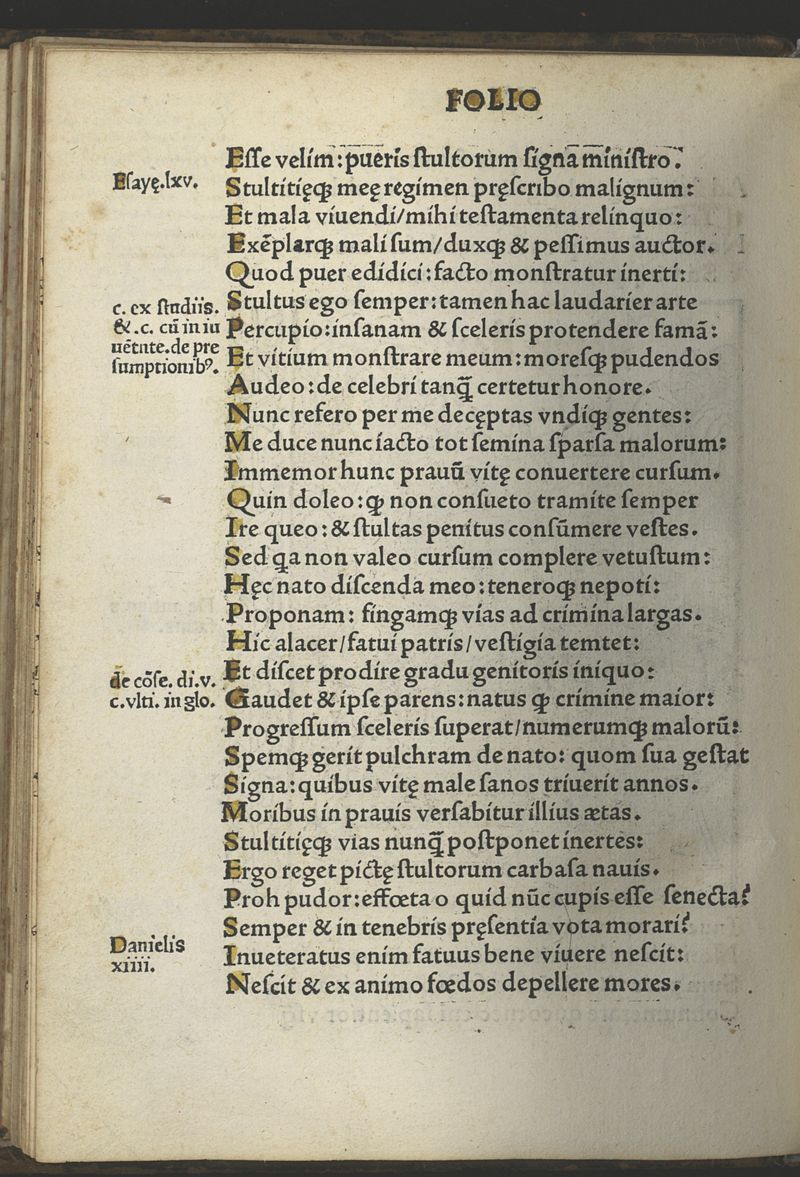 FOLIO
Eſſe velim: pueris ſtultorum ſigna miniſtro.
Eſayę.lxv.
Stultitięqꝫ meę regimen pręſcribo malignum:
Et mala viuendi/mihi teſtamenta relinquo:
Exẽplarqꝫ mali ſum/duxqꝫ & peſſimus auctor.
Quod puer edidici: facto monſtratur inerti:
c. ex ſtudiis.
&.c. cũ in iu
uẽtute.de pre
ſumptionibꝰ.
Stultus ego ſemper: tamen hac laudarier arte
Percupio: inſanam & ſceleris protendere famã:
Et vitium monſtrare meum: moreſqꝫ pudendos
Audeo: de celebri tanq̃ certetur honore.
Nunc refero per me decęptas vndiqꝫ gentes:
Me duce nunc iacto tot ſemina ſparſa malorum:
Immemor hunc prauũ vitę conuertere curſum.
Quin doleo: qꝫ non conſueto tramite ſemper
Ire queo: & ſtultas penitus conſũmere veſtes.
Sed qa non valeo curſum complere vetuſtum:
Hęc nato diſcenda meo: teneroqꝫ nepoti:
Proponam: fingamqꝫ vias ad crimina largas.
Hic alacer/fatui patris/veſtigia temtet:
de cõſe. di.v.
c.vlti. in glo.
Et diſcet prodire gradu genitoris iniquo:
Gaudet & ipſe parens: natus qꝫ crimine maior:
Progreſſum ſceleris ſuperat/numerumqꝫ malorũ:
Spemqꝫ gerit pulchram de nato: quom ſua geſtat
Signa: quibus vitę male ſanos triuerit annos.
Moribus in prauis verſabitur illius ætas.
Stultitięqꝫ vias nunq̃ poſtponet inertes:
Ergo reget pictę ſtultorum carbaſa nauis.
Proh pudor: effœta o quid nũc cupis eſſe ſenecta?
Semper & in tenebris pręſentia vota morari?
Danielis
xiiii.
Inueteratus enim fatuus bene viuere neſcit:
Neſcit & ex animo fœdos depellere mores.